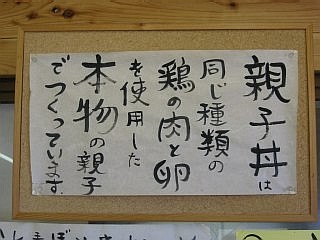 親子丼は
同じ種類の
鶏の肉と卵
を使用した
本物の親子
でつくっています.